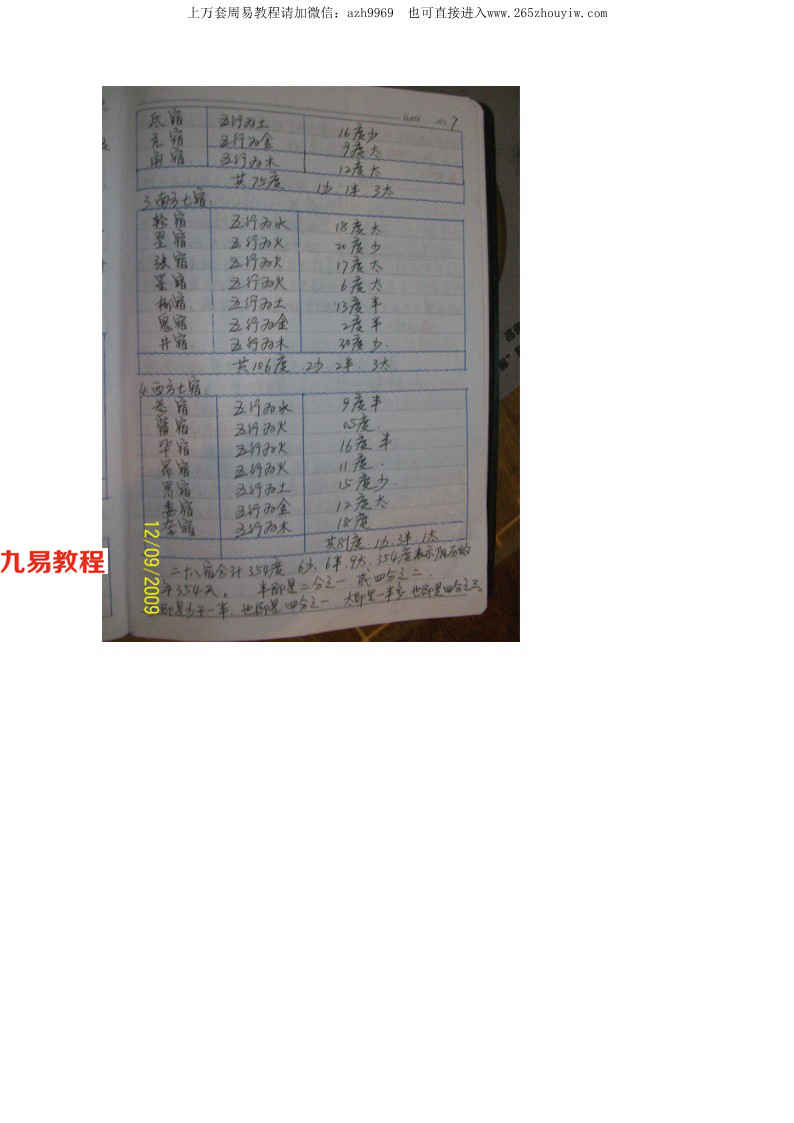 上万套周易教程请加微信：azh9969 也可直接进入www.265zhouyiw.com
DATE 7
氐宿 五行为土 16度少
亢宿 五行为金 9度大
角宿 五行为木 12度大
共75度 1少 1半 3大
3.南方七宿.
轸宿 五行为水 18度大
五行为火 20度少
张宿 五行为火 17度大
星宿 五行为火 6度大
柳宿 五行为土 13度半
鬼宿 五行为金 2度半
井宿 五行为木 30度少.
共106度 2少 2半. 3大
4.西方七宿.
宿 五行为水 9度半
宿 五行为火 度.
毕宿 五行为火 16度半
昴宿 五行为火 11度.
胃宿 五行为土 15度少.
娄宿 五行为金 12度大
奎宿 五行为木 18度
共 度. 1少. 半 1大
二十八宿合计354度 6少. 6半. 9大. 354度表示 历的
年354天。 半即是二分之一 或四分之二.
即是少于一半. 也即是四分之一 大即是一半多 也即是四分之三。
12/09/2009
九易教程